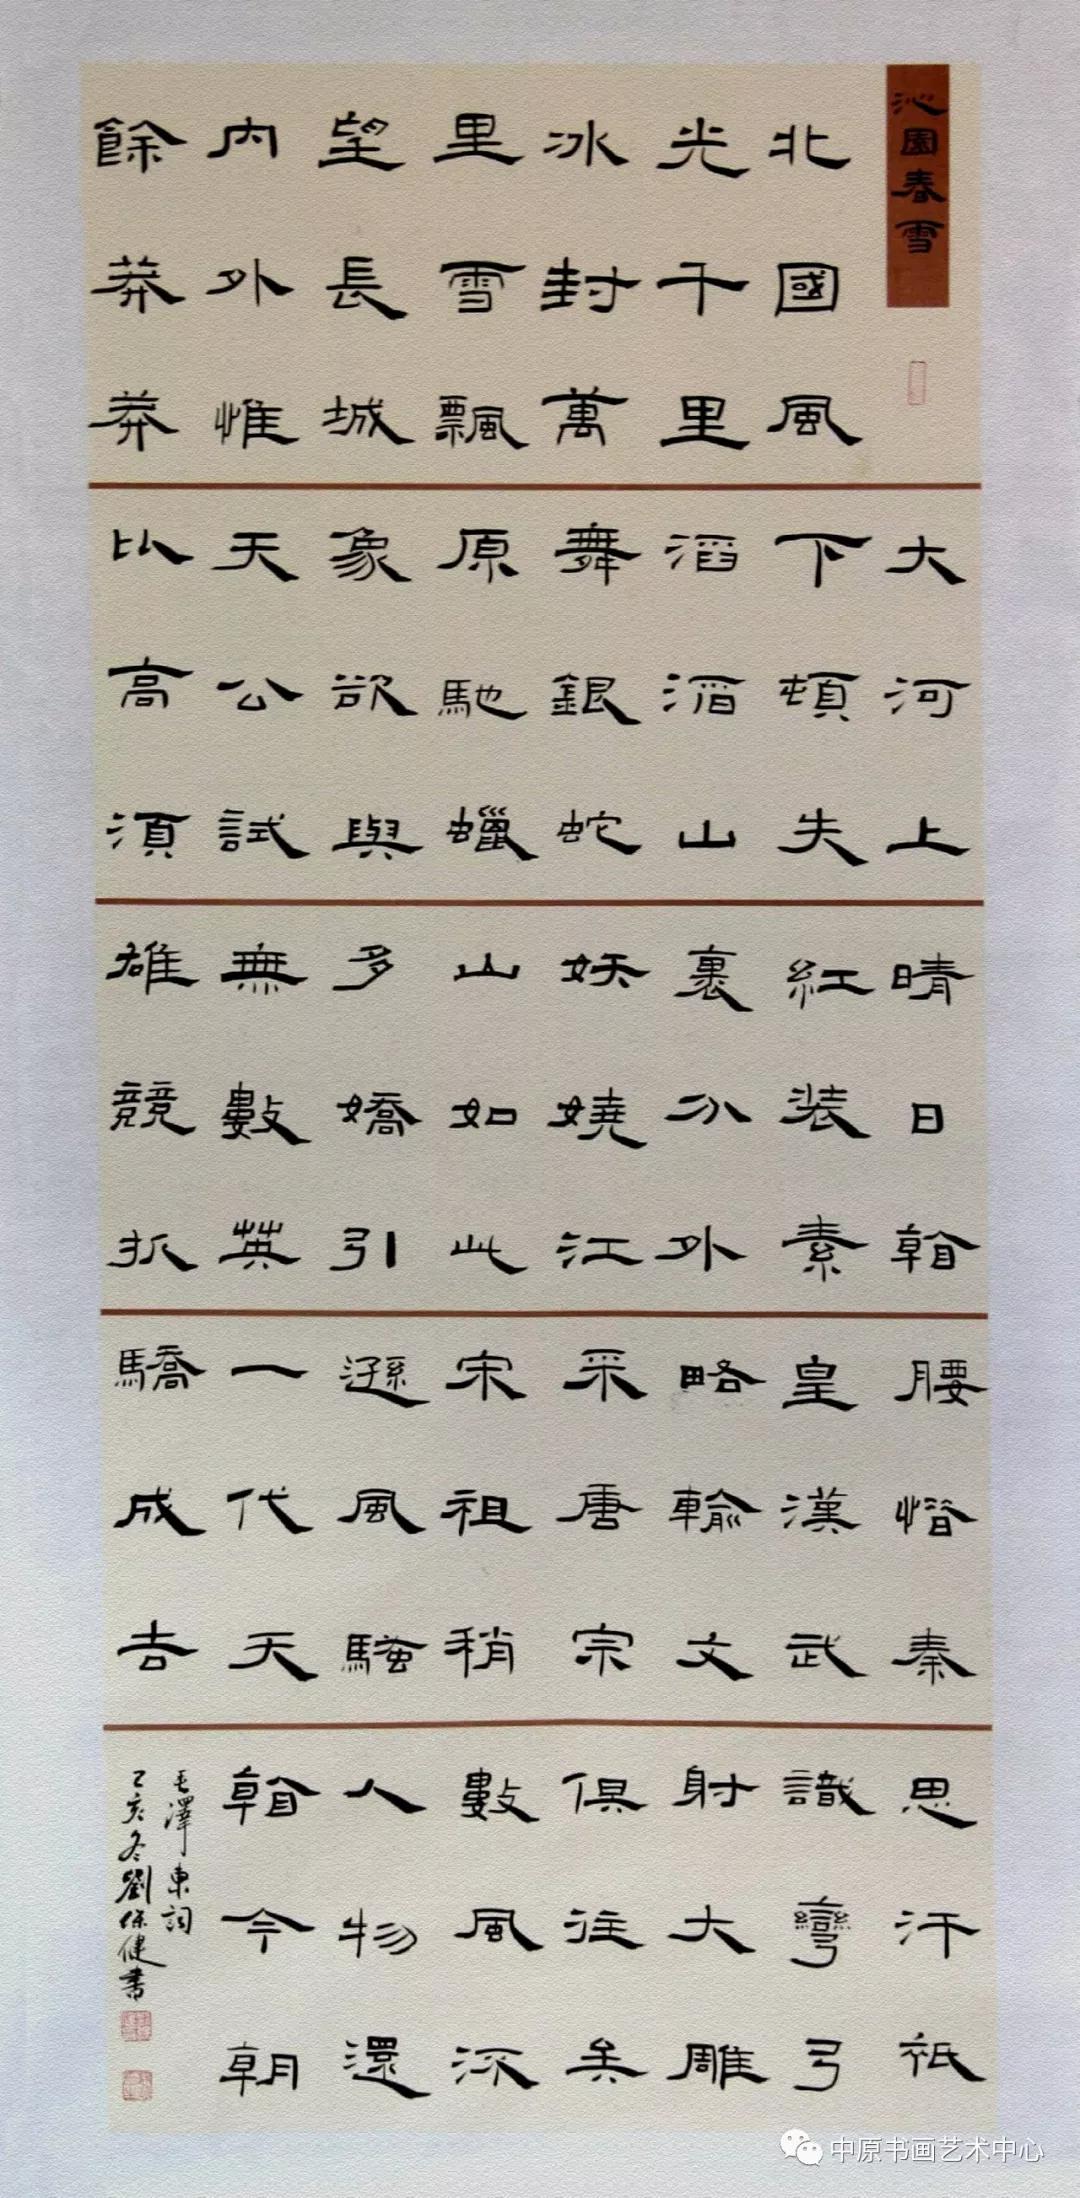 沁園春雪
北國風
光千里
冰封萬
里雪飄
望長城
内外惟
餘莽莽
大河上
下頓失
滔滔山
舞銀蛇
原馳蠟
象欲與
天公試
比高須
晴日看
紅装素
裹分外
妖嬈江
山如此
多嬌引
無數英
雄競折
腰惜秦
皇漢武
略輸文
采唐宗
宋祖稍
遜風騷
一代天
驕成吉
思汗祇
識彎弓
射大雕
俱往矣
數風流
人物還
看今朝
毛澤東詞
己亥冬劉保健書
中原书画艺术中心